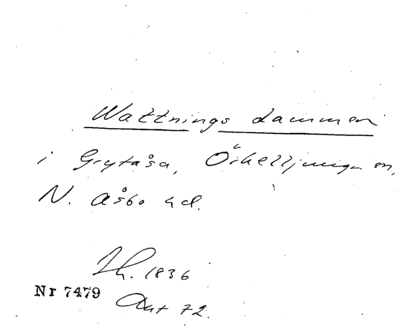 Wattnings dammen
i Grytåsa, Örkelljunga sn,
N. Åsbo hd.
Th. 1836
Nr 7479
Aut 72.